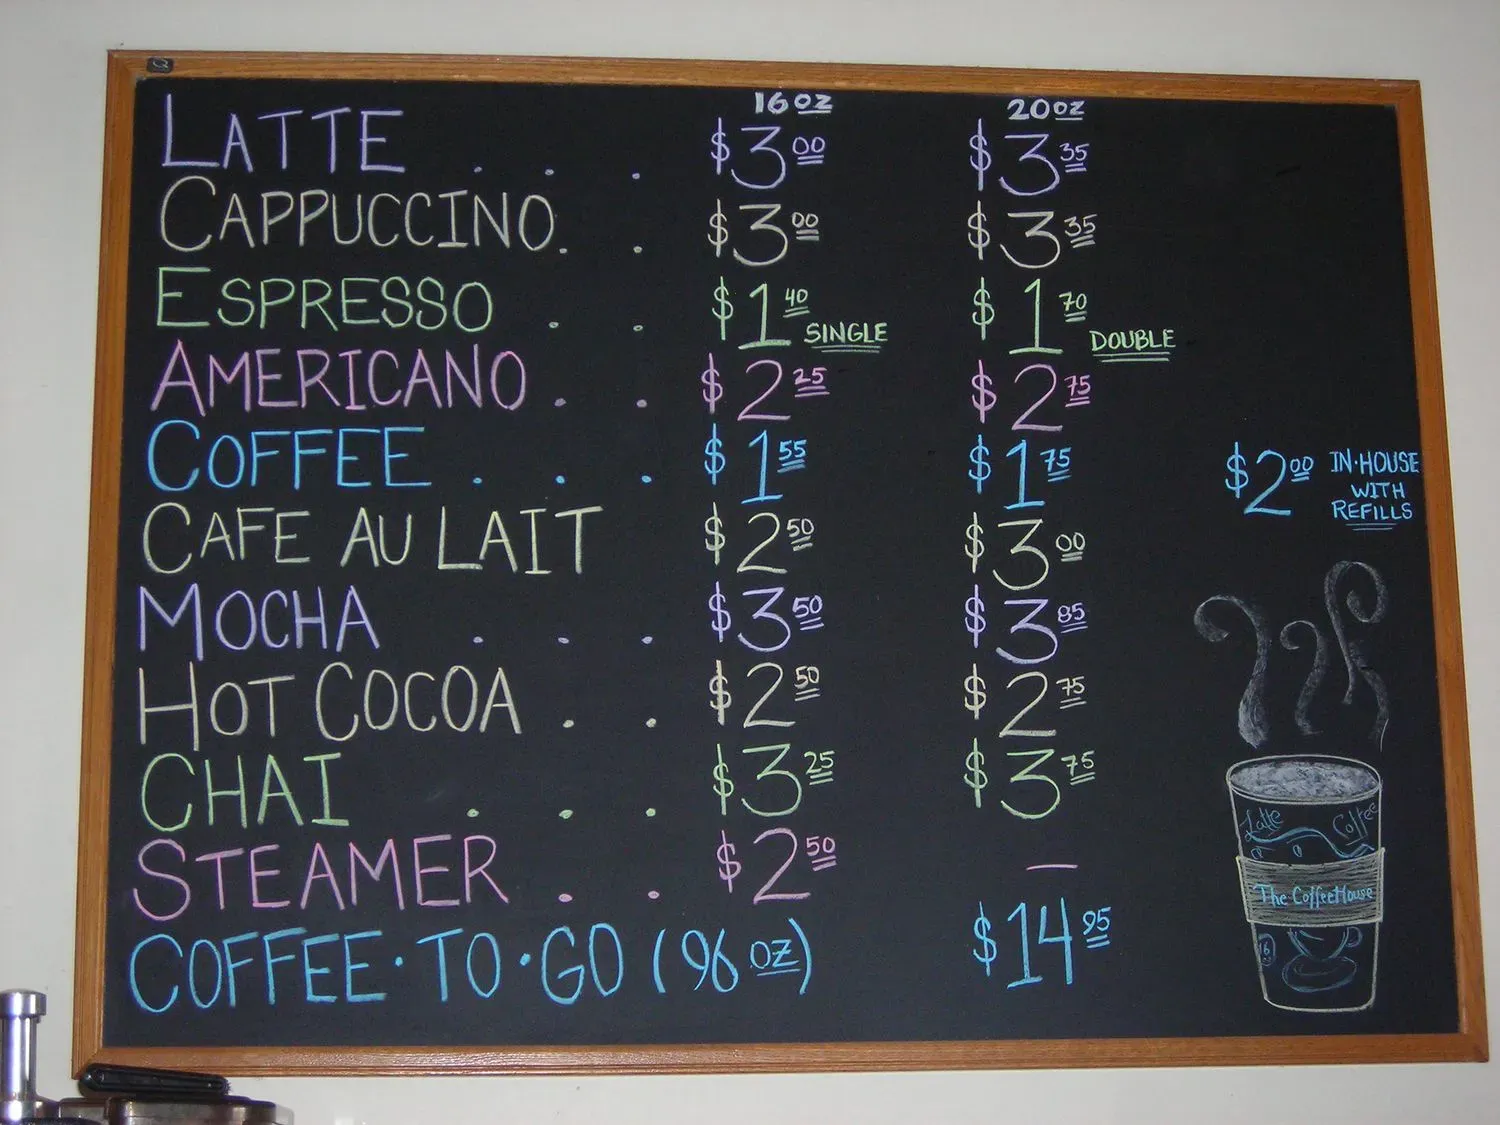 16 oz 20 oz
LATTE . . . $3.00 $3.35
CAPPUCCINO . . $3.00 $3.35
ESPRESSO . . $1.40 SINGLE $1.70 DOUBLE
AMERICANO . . $2.25 $2.75
COFFEE . . . $1.55 $1.75 $2.00 IN·HOUSE
WITH
REFILLS
CAFE AU LAIT $2.50 $3.00
MOCHA . . . $3.50 $3.85
HOT COCOA . . $2.50 $2.75
CHAI . . . $3.25 $3.75
STEAMER . . $2.50 —
COFFEE·TO·GO (96 oz) $14.95
Latte Coffee
The CoffeeHouse
16